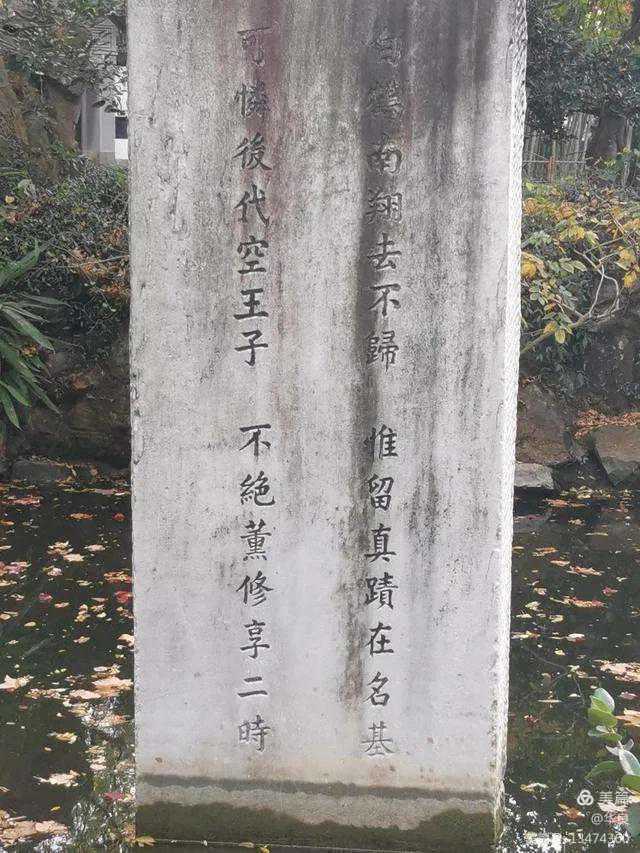 白鶴南翔去不歸　惟留真蹟在名基
可憐後代空王子　不絕薰修享二時
美篇
@华良